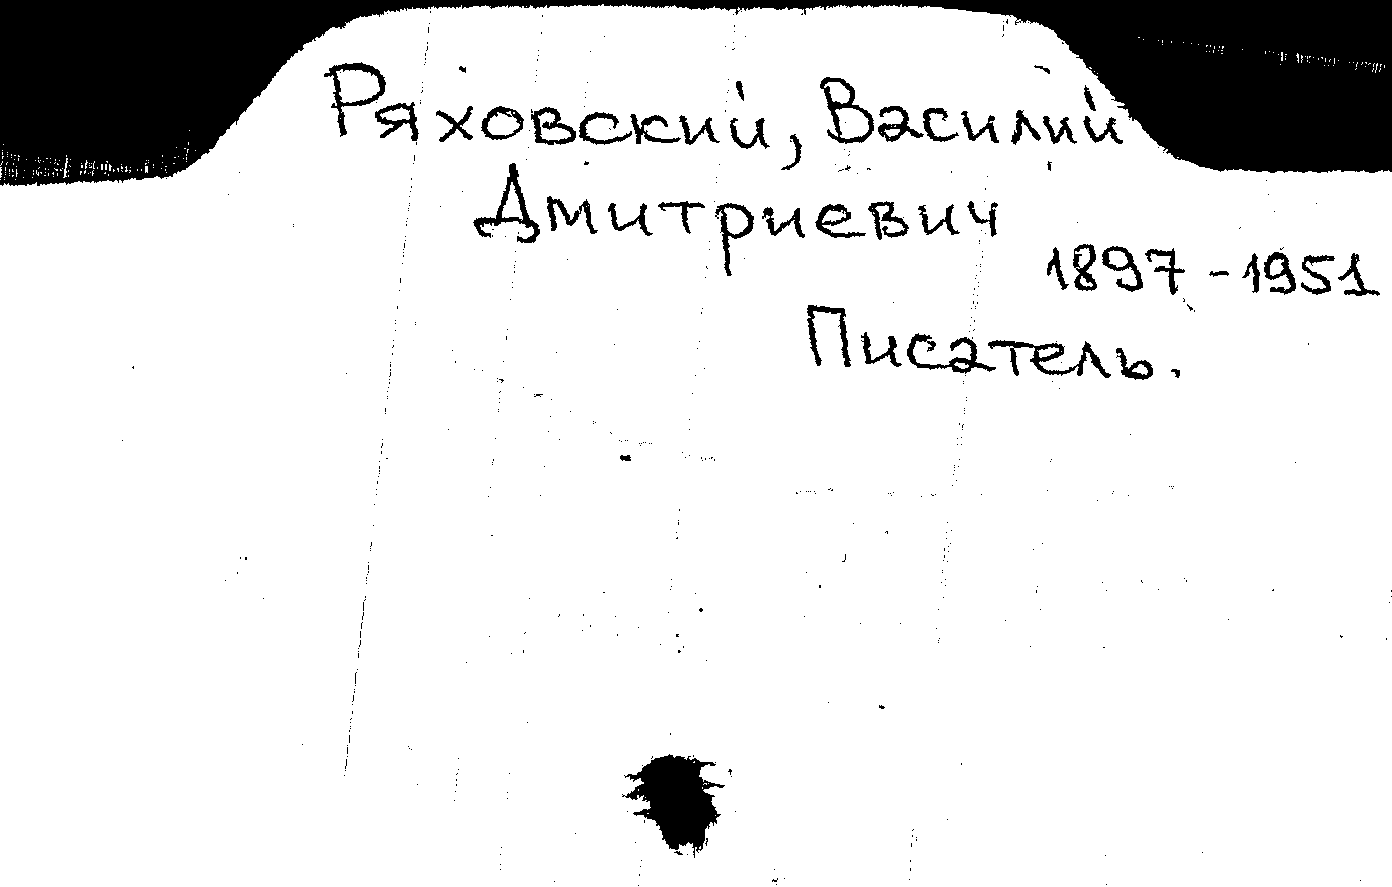 Ряховский, Василий
Дмитриевич
1897 - 1951
Писатель.